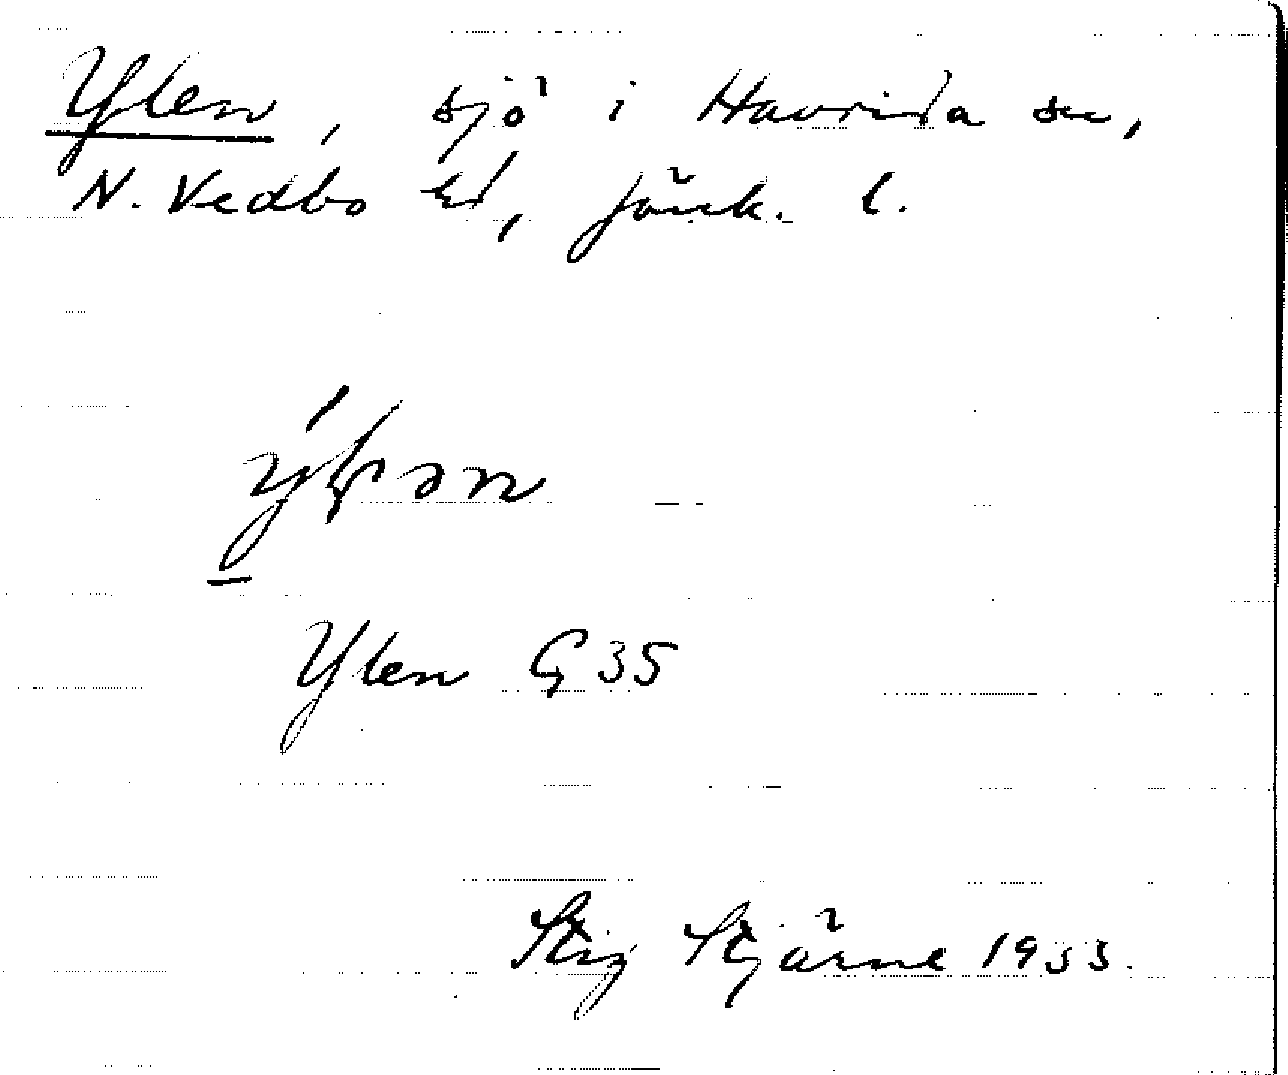 Ylen, sjö i Haurida sn,
N. Vedbo hd, Jönk. l.
Ylen G 35
Stig Stjärne 1933.